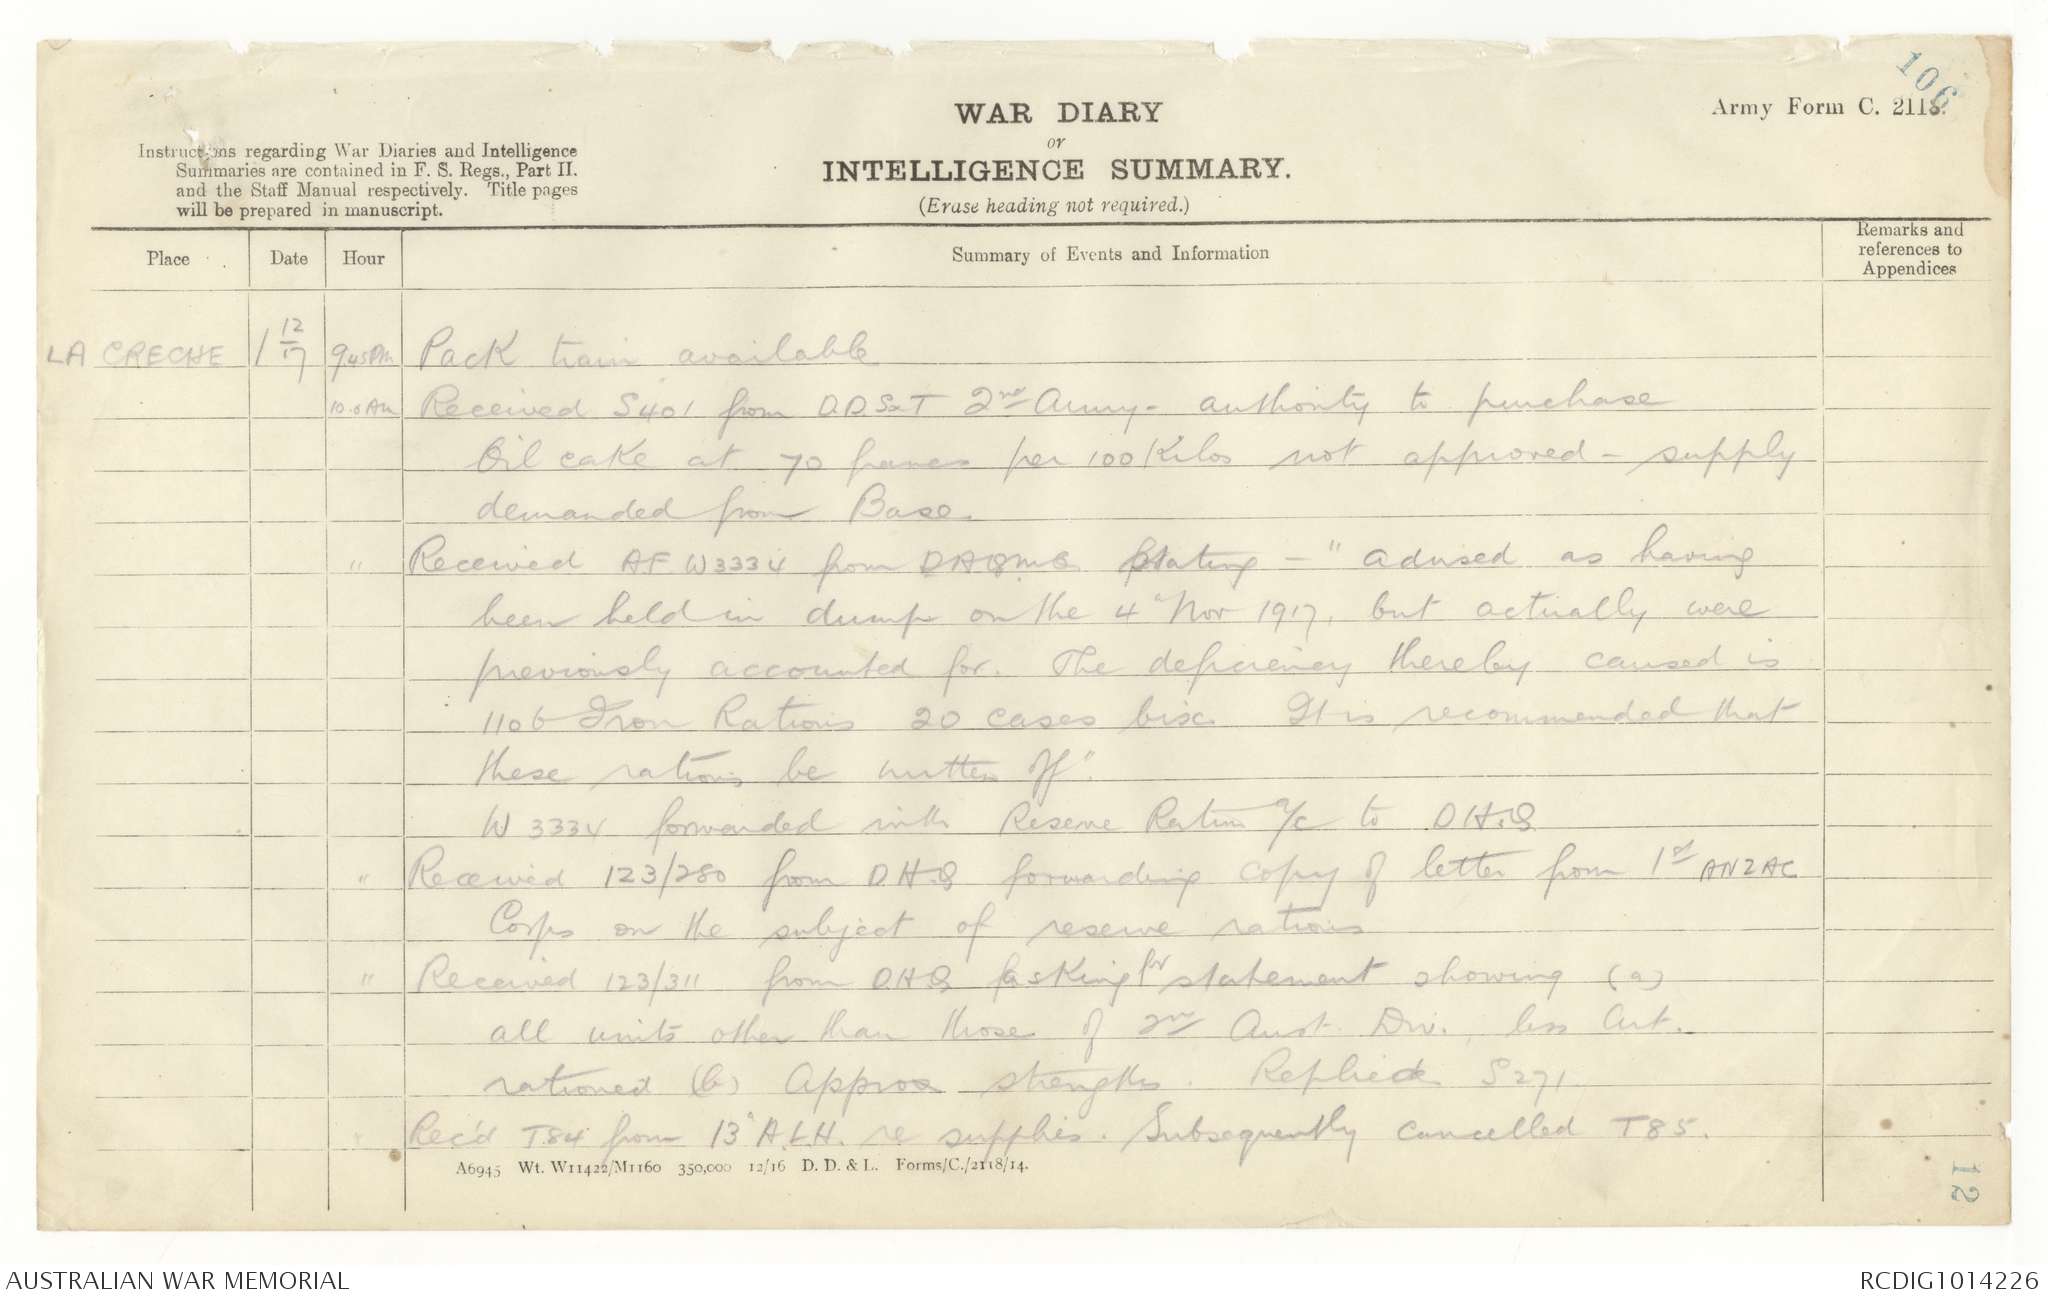 106
Army Form C. 2118.
WAR DIARY
or
INTELLIGENCE SUMMARY.
(Erase heading not required.)
Instructions regarding War Diaries and Intelligence
Summaries are contained in F. S. Regs., Part II.
and the Staff Manual respectively. Title pages
will be prepared in manuscript.
Place Date Hour Summary of Events and Information Remarks and references to Appendices
LA CRECHE 1 12/17 9 45 PM Pack train available
10.0 AM Received S401 from D.D.S&T 2nd Army - authority to purchase
Oil cake at 70 francs per 100 Kilos not approved - supply
demanded from Base.
" Received AF W3334 from DAQMG stating - " advised as having
been held in dump on the 4" Nov 1917, but actually were
previously accounted for. The deficiency thereby caused is
1106 Iron Rations 20 cases bisc. It is recommended that
these rations be written off".
W 3334 forwarded with Reserve Ration a/c to D.H.Q
" Received 123/280 from D.H.Q forwarding copy of letter from 1st ANZAC
Corps on the subject of reserve rations
" Received 123/311 from D.H.Q asking for statement showing (a)
all units other than those of 2nd Aust. Div., less Art.
rationed (b) Approx strengths. Replied S271.
" Rec'd T84 from 13" A.L.H. re supplies. Subsequently cancelled T85.
A6945 Wt. W11422/M1160 350,000 12/16 D. D. & L. Forms/C./2118/14.
12
AUSTRALIAN WAR MEMORIAL
RCDIG1014226